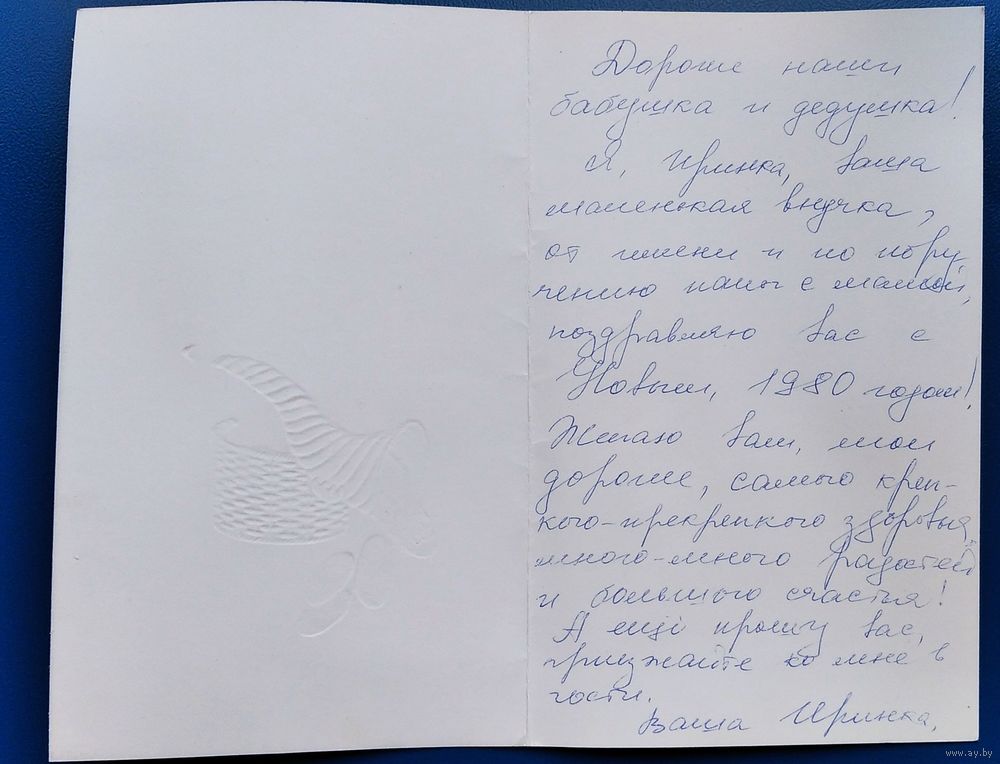 Дорогие наши
бабушка и дедушка!
Я, Иринка, ваша
маленькая внучка,
от имени и по пору-
чению папы с мамой,
поздравляю вас с
Новым, 1980 годом!
Желаю вам, мои
дорогие, самого креп-
кого-прекрепкого здоровья,
много-много радостей
и большого счастья!
А ещё прошу вас,
приезжайте ко мне в
гости.
Ваша Иринка.
www.ay.by